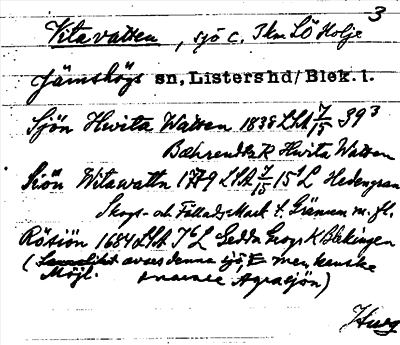 3
Vitavatten, sjö c. 3 km SÖ Holje
Jämshögs sn, Listers hd/Blek. l.
Sjön Hwita Watten 1838 LSA 7/15 39³
Bæhrendtz K Hwita Watten
Siön Witawattn 1779 LSA 7/15 15¹ L Hedengran
Skogs- och Fällads Mark t. Gränum m. fl.
Rösiön 1684 LSA J6 L Gedda Geogr K Blekingen
( avses denna sjö, men kanske
Möjl. snarare Agrasjön)